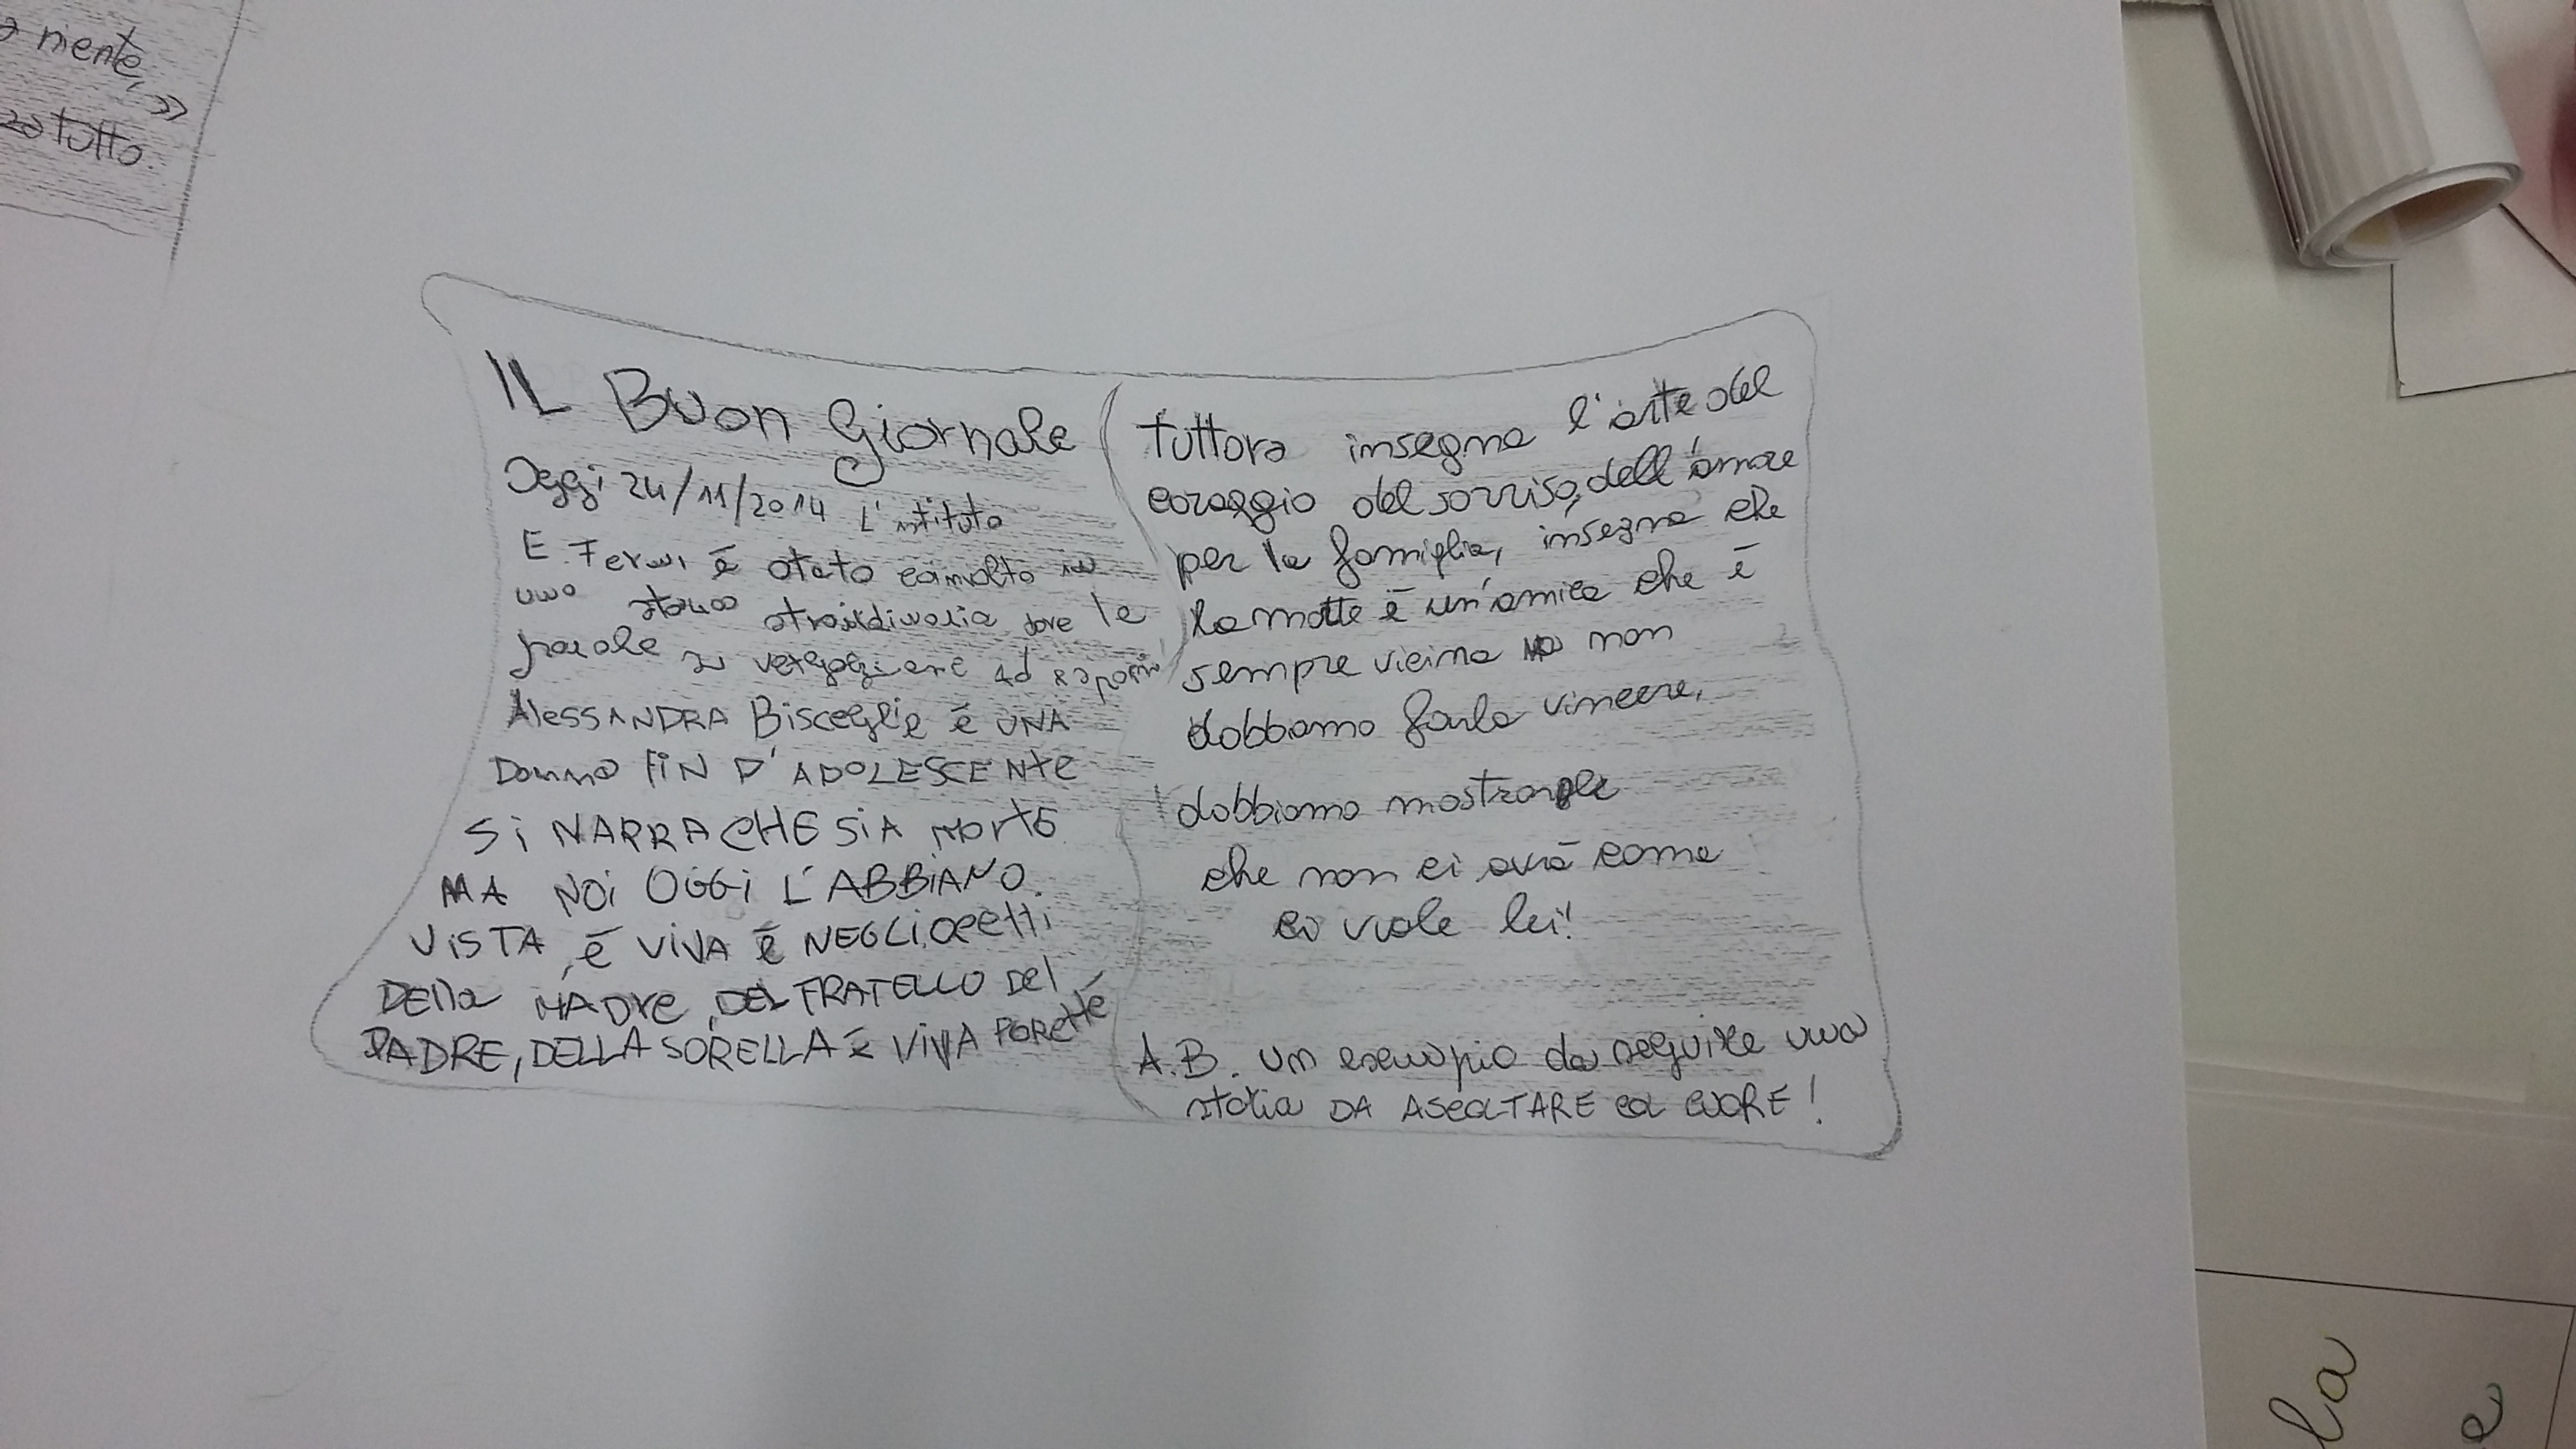 niente, »
tutto.
IL Buon Giornale
Oggi 24/11/2014 L'istituto
E. Fermi è stato coinvolto in
una storia straordinaria dove le
parole si vergognano ad esporsi
AlessANDRA Bisceglie è UNA
Donna FIN D'ADOLESCENte
Si NARRA CHE SiA Morta
MA NOi OGGi L'ABBiAMO
ViSTA, è ViVA è NEGLi occhi
DElla MADre, DEL FRATELLO Del
PADRE, DELLA SORELLA è ViVA PERché
tuttora insegna l'arte del
coraggio del sorriso, dell'amore
per la famiglia, insegna che
la morte è un'amica che è
sempre vicina ma non
dobbiamo farla vincere,
dobbiamo mostrargli
che non ci avrà come
ci vuole lei!
A.B. un esempio da seguire una
storia DA ASCOLTARE col CUORE!
la
e